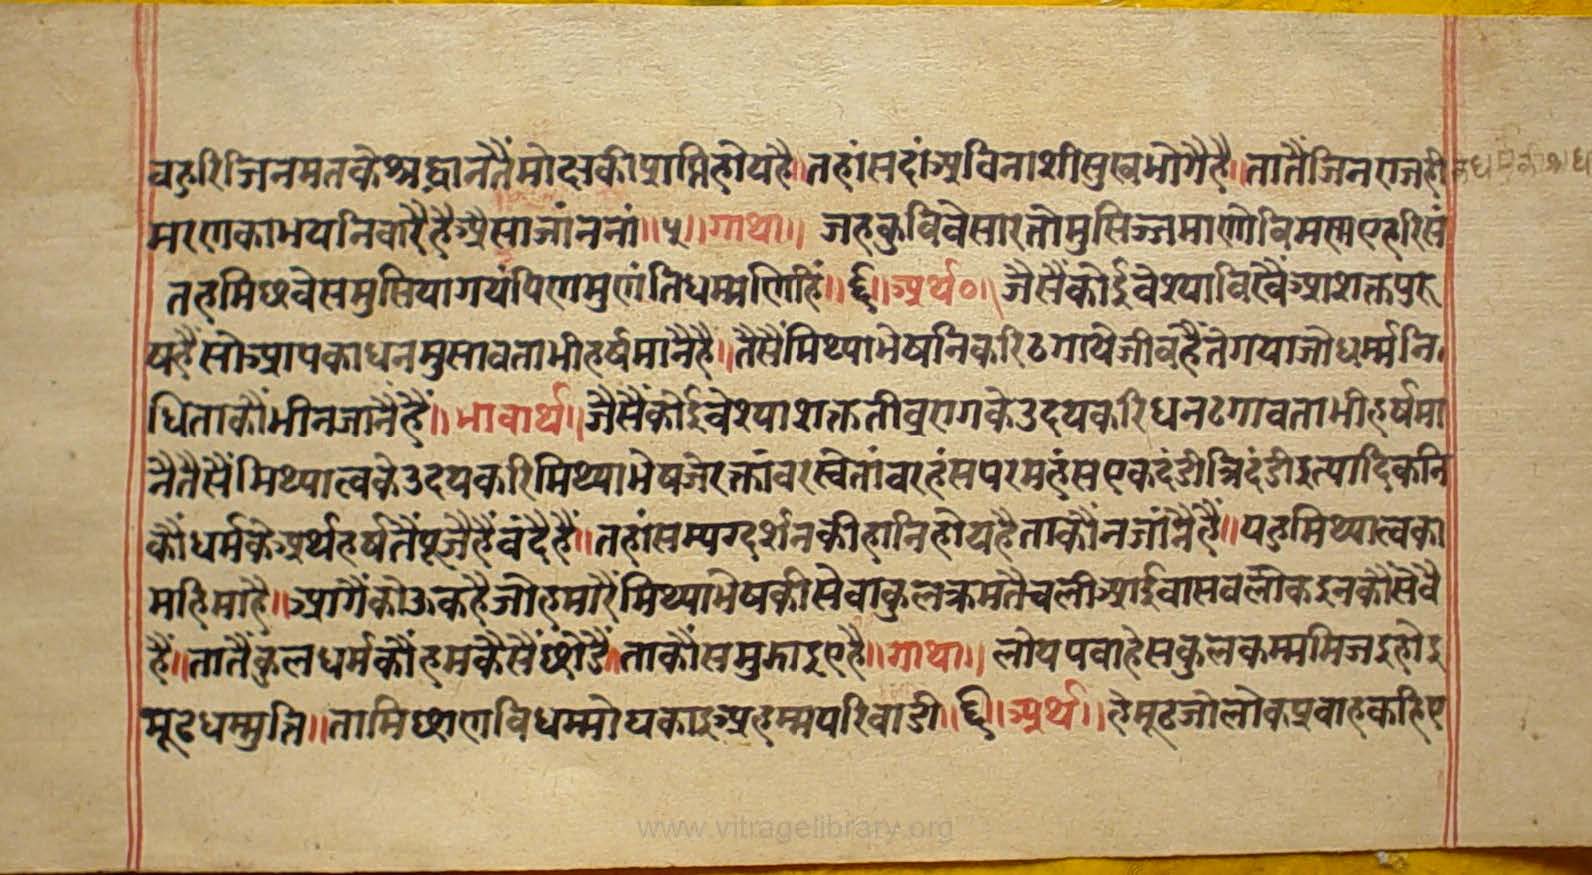 बहुरि जिनमतके श्रद्धानतैं मोक्षकी प्राप्ति होय है॥ तहां सदां अविनाशी सुख भोगै है॥ तातैं जिनराज ही
मरणका भय निवारै है ऐसा जांननां॥५॥ गाथा॥ जह कुवि वेसारतो मुसिज्जमाणो वि मस्मए हरिसं
तह मिछवेसमुसिया गयं पि ण मुणंति धम्मणिहिं॥६॥ अर्थ०॥ जैसैं कोई वेश्या विखैं आशक्त पुरु
ष हैं सो आपका धन मुसावता भी हर्ष मानै है॥ तैसैं मिथ्याभेषनि करि ठगाये जीव हैं ते गया जो धर्म्म नि
धि ताकौं भी न जानैं हैं॥ भावार्थ॥ जैसैं कोई वेश्याशक्त तीव्र रागके उदय करि धन ठगावता भी हर्ष मा
नै तैसैं मिथ्यात्वके उदय करि मिथ्याभेष जे रक्तांवर स्वेतांवर हंस परमहंस एकदंडी त्रिदंडी इत्यादिकनि
कौं धर्मके अर्थ हर्षतैं पूजैहैं वंदैहैं॥ तहां सम्यग्दर्शनकी हानि होय है ताकौं न जांनैहै॥ यहु मिथ्यात्वका
महिमा है॥ आगैं कोऊ कहै जो हमारैं मिथ्याभेषकी सेवा कुलक्रमतै चली आई वा सब लोक इनकौं सेवै
हैं॥ तातैं कुलधर्मकौं हम कैसैं छोडैं ताकौं समुझाइए है॥ गाथा॥ लोयपवाहे सकुलकम्ममि जइ होइ
मूढ धम्मुत्ति॥ ता मिछाण वि धम्मो यकाइ अहम्मपरिवाडी॥६॥ अर्थ॥ हे मूढ जो लोकप्रवाह कहिए
www.vitragelibrary.org